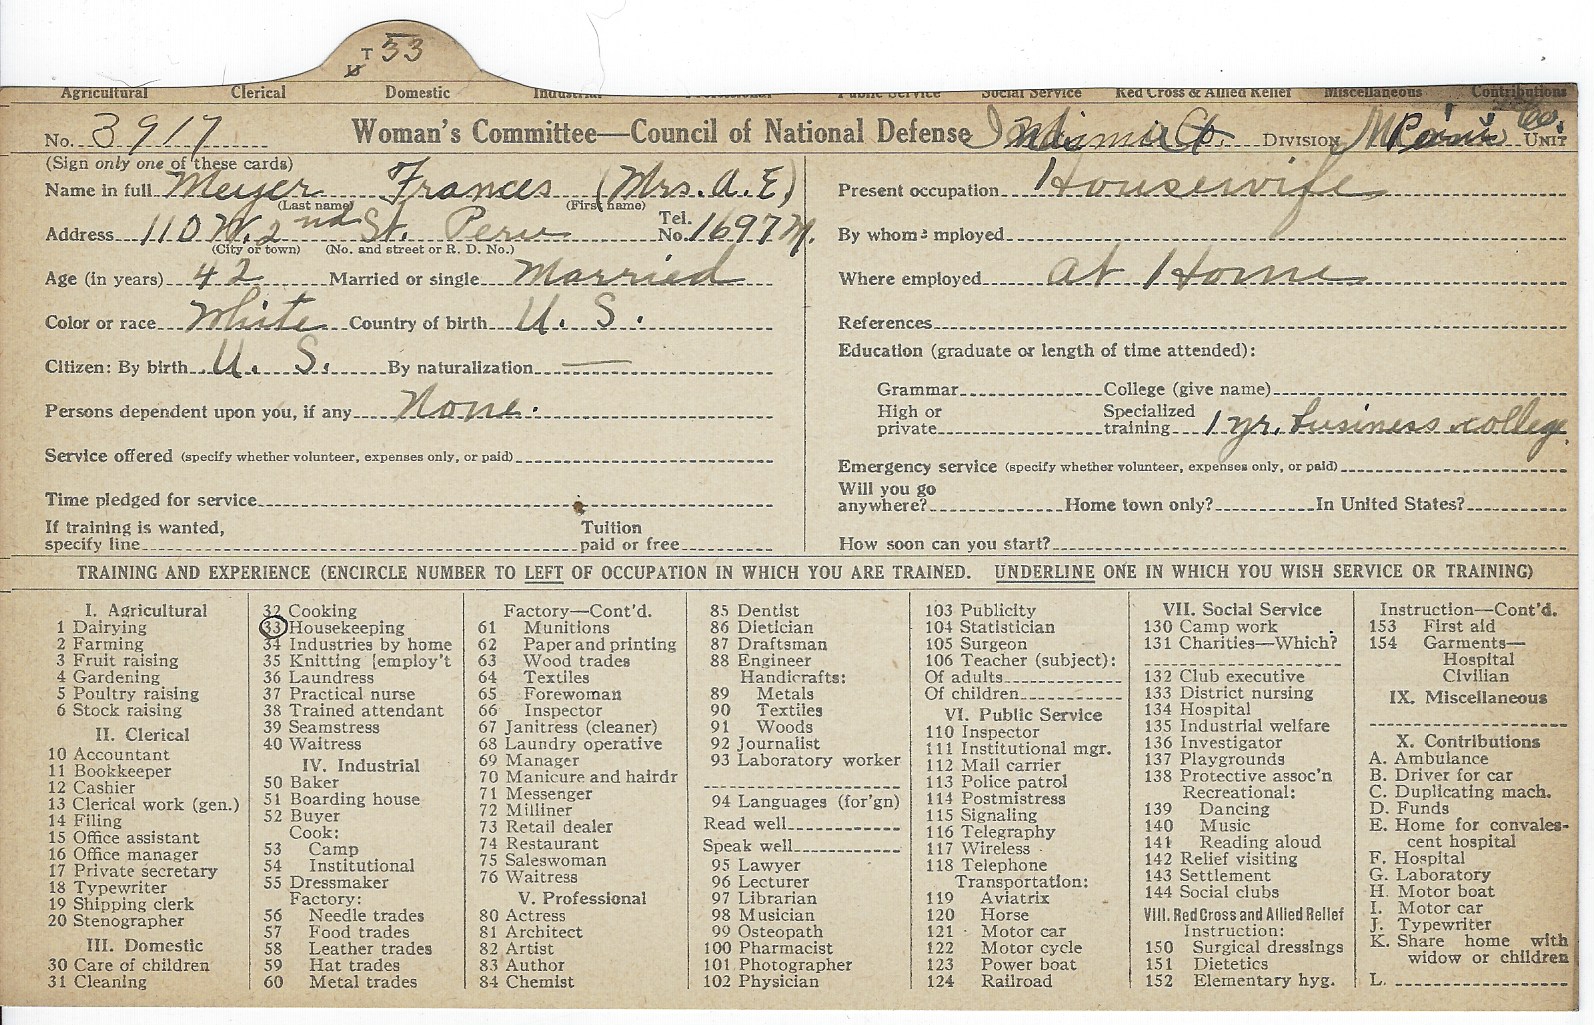 T 33
U
Agricultural Clerical Domestic Industrial Professional Public Service Social Service Red Cross & Allied Relief Miscellaneous Contributions
No. 3917 Woman's Committee—Council of National Defense Indiana DIVISION Peru UNIT
Miami Co.
(Sign only one of these cards)
Name in full Meyer Frances (Mrs. A. E.)
(Last name) (First name)
Address 110 W. 2nd St. Peru Tel. No. 1697 M.
(City or town) (No. and street or R. D. No.)
Age (in years) 42 Married or single Married
Color or race White Country of birth U. S.
Citizen: By birth U. S. By naturalization —
Persons dependent upon you, if any None.
Service offered (specify whether volunteer, expenses only, or paid)
Time pledged for service
If training is wanted, specify line Tuition paid or free
Present occupation Housewife
By whom employed
Where employed at Home
References
Education (graduate or length of time attended):
Grammar College (give name)
High or private Specialized training 1 yr. business college.
Emergency service (specify whether volunteer, expenses only, or paid)
Will you go anywhere? Home town only? In United States?
How soon can you start?
TRAINING AND EXPERIENCE (ENCIRCLE NUMBER TO LEFT OF OCCUPATION IN WHICH YOU ARE TRAINED. UNDERLINE ONE IN WHICH YOU WISH SERVICE OR TRAINING)
I. Agricultural
1 Dairying
2 Farming
3 Fruit raising
4 Gardening
5 Poultry raising
6 Stock raising
II. Clerical
10 Accountant
11 Bookkeeper
12 Cashier
13 Clerical work (gen.)
14 Filing
15 Office assistant
16 Office manager
17 Private secretary
18 Typewriter
19 Shipping clerk
20 Stenographer
III. Domestic
30 Care of children
31 Cleaning
32 Cooking
33 Housekeeping
34 Industries by home
35 Knitting [employ't
36 Laundress
37 Practical nurse
38 Trained attendant
39 Seamstress
40 Waitress
IV. Industrial
50 Baker
51 Boarding house
52 Buyer
Cook:
53 Camp
54 Institutional
55 Dressmaker
Factory:
56 Needle trades
57 Food trades
58 Leather trades
59 Hat trades
60 Metal trades
Factory—Cont'd.
61 Munitions
62 Paper and printing
63 Wood trades
64 Textiles
65 Forewoman
66 Inspector
67 Janitress (cleaner)
68 Laundry operative
69 Manager
70 Manicure and hairdr
71 Messenger
72 Milliner
73 Retail dealer
74 Restaurant
75 Saleswoman
76 Waitress
V. Professional
80 Actress
81 Architect
82 Artist
83 Author
84 Chemist
85 Dentist
86 Dietician
87 Draftsman
88 Engineer
Handicrafts:
89 Metals
90 Textiles
91 Woods
92 Journalist
93 Laboratory worker
94 Languages (for'gn)
Read well
Speak well
95 Lawyer
96 Lecturer
97 Librarian
98 Musician
99 Osteopath
100 Pharmacist
101 Photographer
102 Physician
103 Publicity
104 Statistician
105 Surgeon
106 Teacher (subject):
Of adults
Of children
VI. Public Service
110 Inspector
111 Institutional mgr.
112 Mail carrier
113 Police patrol
114 Postmistress
115 Signaling
116 Telegraphy
117 Wireless
118 Telephone
Transportation:
119 Aviatrix
120 Horse
121 Motor car
122 Motor cycle
123 Power boat
124 Railroad
VII. Social Service
130 Camp work
131 Charities—Which?
132 Club executive
133 District nursing
134 Hospital
135 Industrial welfare
136 Investigator
137 Playgrounds
138 Protective assoc'n
Recreational:
139 Dancing
140 Music
141 Reading aloud
142 Relief visiting
143 Settlement
144 Social clubs
VIII. Red Cross and Allied Relief
Instruction:
150 Surgical dressings
151 Dietetics
152 Elementary hyg.
Instruction—Cont'd.
153 First aid
154 Garments—
Hospital
Civilian
IX. Miscellaneous
X. Contributions
A. Ambulance
B. Driver for car
C. Duplicating mach.
D. Funds
E. Home for convales-
cent hospital
F. Hospital
G. Laboratory
H. Motor boat
I. Motor car
J. Typewriter
K. Share home with
widow or children
L.